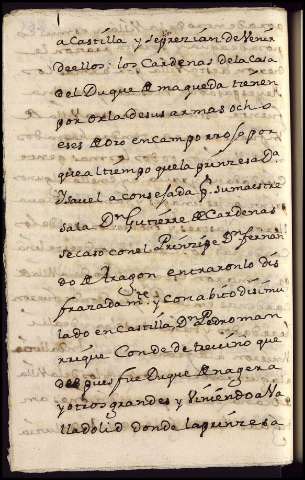 a Castilla y se prezian de Venir
de ellos: los Cardenas de la Casa
del Duque de maqueda trenen
por orla de sus armas och o
eses de oro en campo rroso por
que al tiempo que la prinzesa Da
Ysavel aconsejada pr. su maestre
sala Dn Gutierre de Cardenas
se caso con el Prinzipe Dn fernan
do de Aragon entraron lo dis
frazada mte. y con abito disimu
lado en Castilla, Dn Pedro man
rrique Conde de trevino que
despues fue Duque de nagera
y otros grandes y Viniendo a Va
lladolid donde la prinzesa